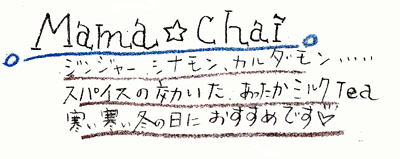 Mama☆Chai
ジンジャー、シナモン、カルダモン.....
スパイスの効いた、あったかミルクTea
寒い、寒い冬の日におすすめです♡